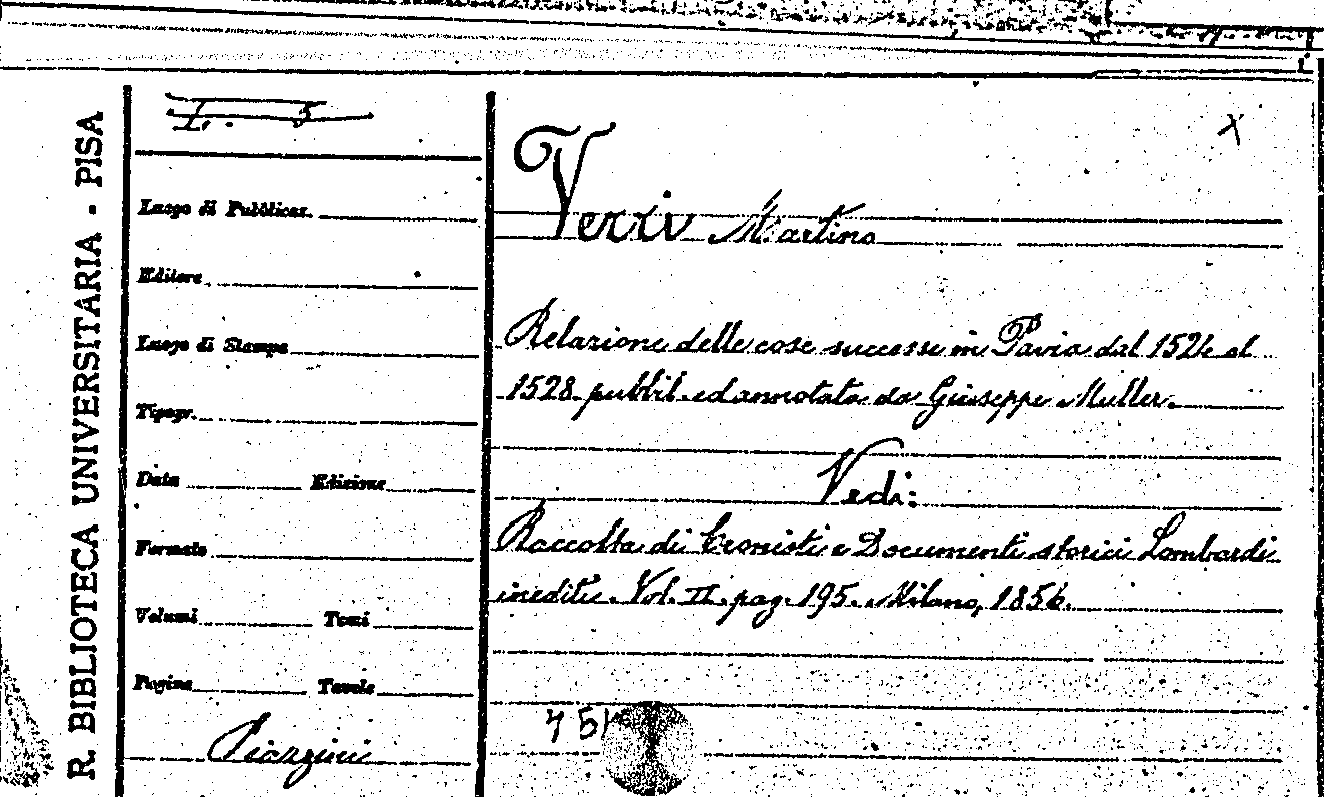 R. BIBLIOTECA UNIVERSITARIA - PISA
I. 5
Luogo di Pubblicaz.
Editore
Luogo di Stampa
Tipogr.
Data Edizione
Formato
Volumi Tomi
Pagine Tavole
Piazzini
X
Verri Martino
Relazione delle cose successe in Pavia dal 1524 al
1528 pubbl. ed annotata da Giuseppe Muller.
Vedi:
Raccolta di Cronisti e Documenti storici Lombardi
inediti. Vol. II. pag. 195. Milano, 1856.